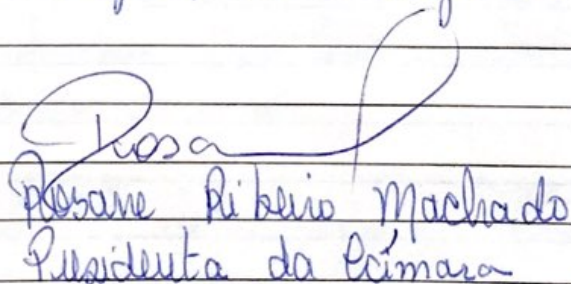 Rosa
Rosane Ribeiro Machado
Presidenta da Câmara